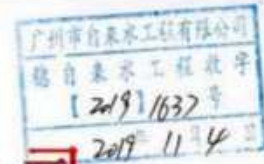 广州市自来水工程有限公司
穗自来水工程收字
【2019】1637号
2019年11月4日